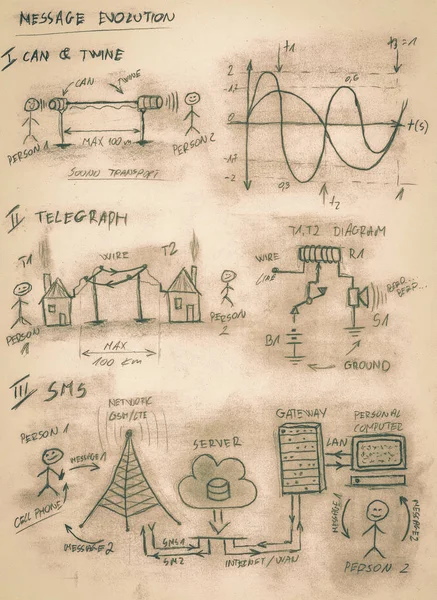 MESSAGE EVOLUTION
I CAN & TWINE
CAN
TWINE
MAX 100 m
PERSON 1
PERSON 2
SOUND TRANSPORT
t1
t3=1
2
0,6
0
t(s)
-2
0,3
t2
1
II TELEGRAPH
T1
WIRE
T2
PERSON
1
PERSON
2
MAX
100 km
T1,T2 DIAGRAM
WIRE
LINE
R1
BEEP...
BEEP...
S1
B1
GROUND
III SMS
NETWORK
GSM/LTE
PERSON 1
MESSAGE 1
CELL PHONE
MESSAGE 2
SERVER
SMS1
SM2
INTERNET/WAN
GATEWAY
LAN
PERSONAL
COMPUTER
MESSAGE 1
MESSAGE 2
PERSON 2